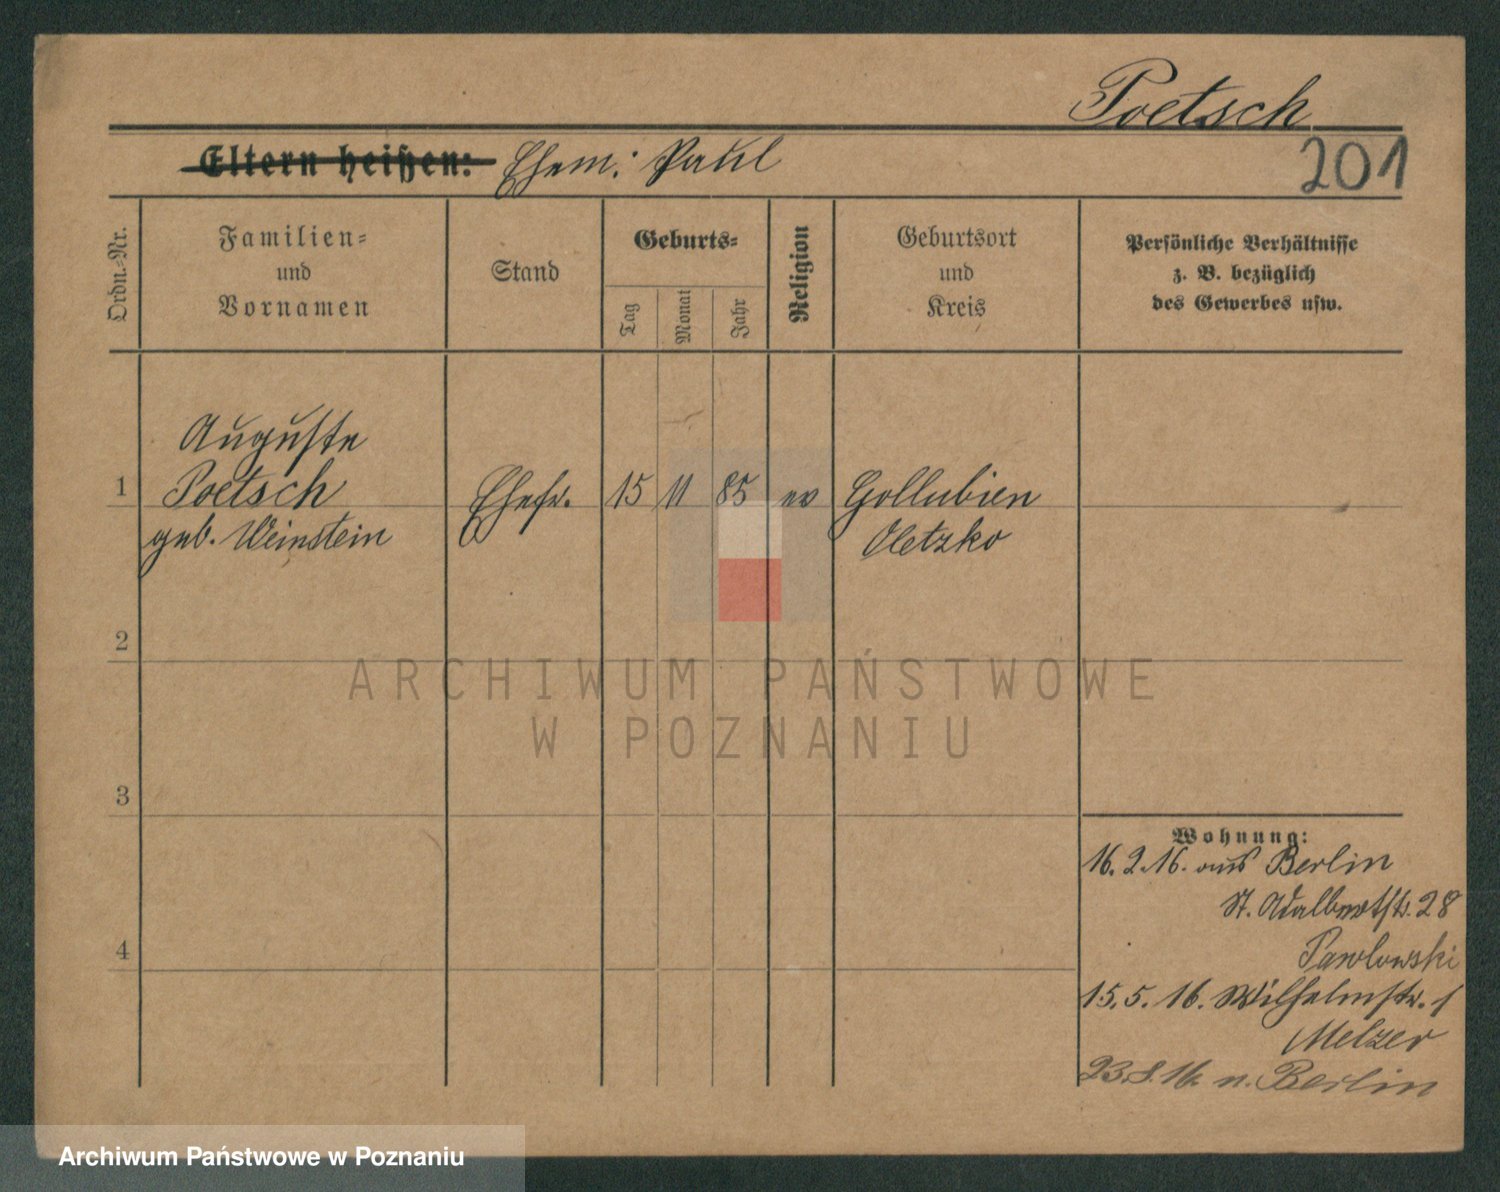 Poetsch
Eltern heißen: Ehem: Paul
201
Ordn.-Nr.
Familien-
und
Vornamen
Stand
Geburts-
Tag
Monat
Jahr
Religion
Geburtsort
und
Kreis
Persönliche Verhältnisse
z. B. bezüglich
des Gewerbes usw.
Auguste
1 Poetsch Ehefr. 15 11 85 ev Gollubien
geb. Weinstein Oletzko
2
ARCHIWUM PAŃSTWOWE
W POZNANIU
3
Wohnung:
16.2.16. aus Berlin
St. Adalbertstr. 28
Pawlowski
4
15.5.16. Wilhelmstr. 1
Melzer
23.8.16 n. Berlin
Archiwum Państwowe w Poznaniu